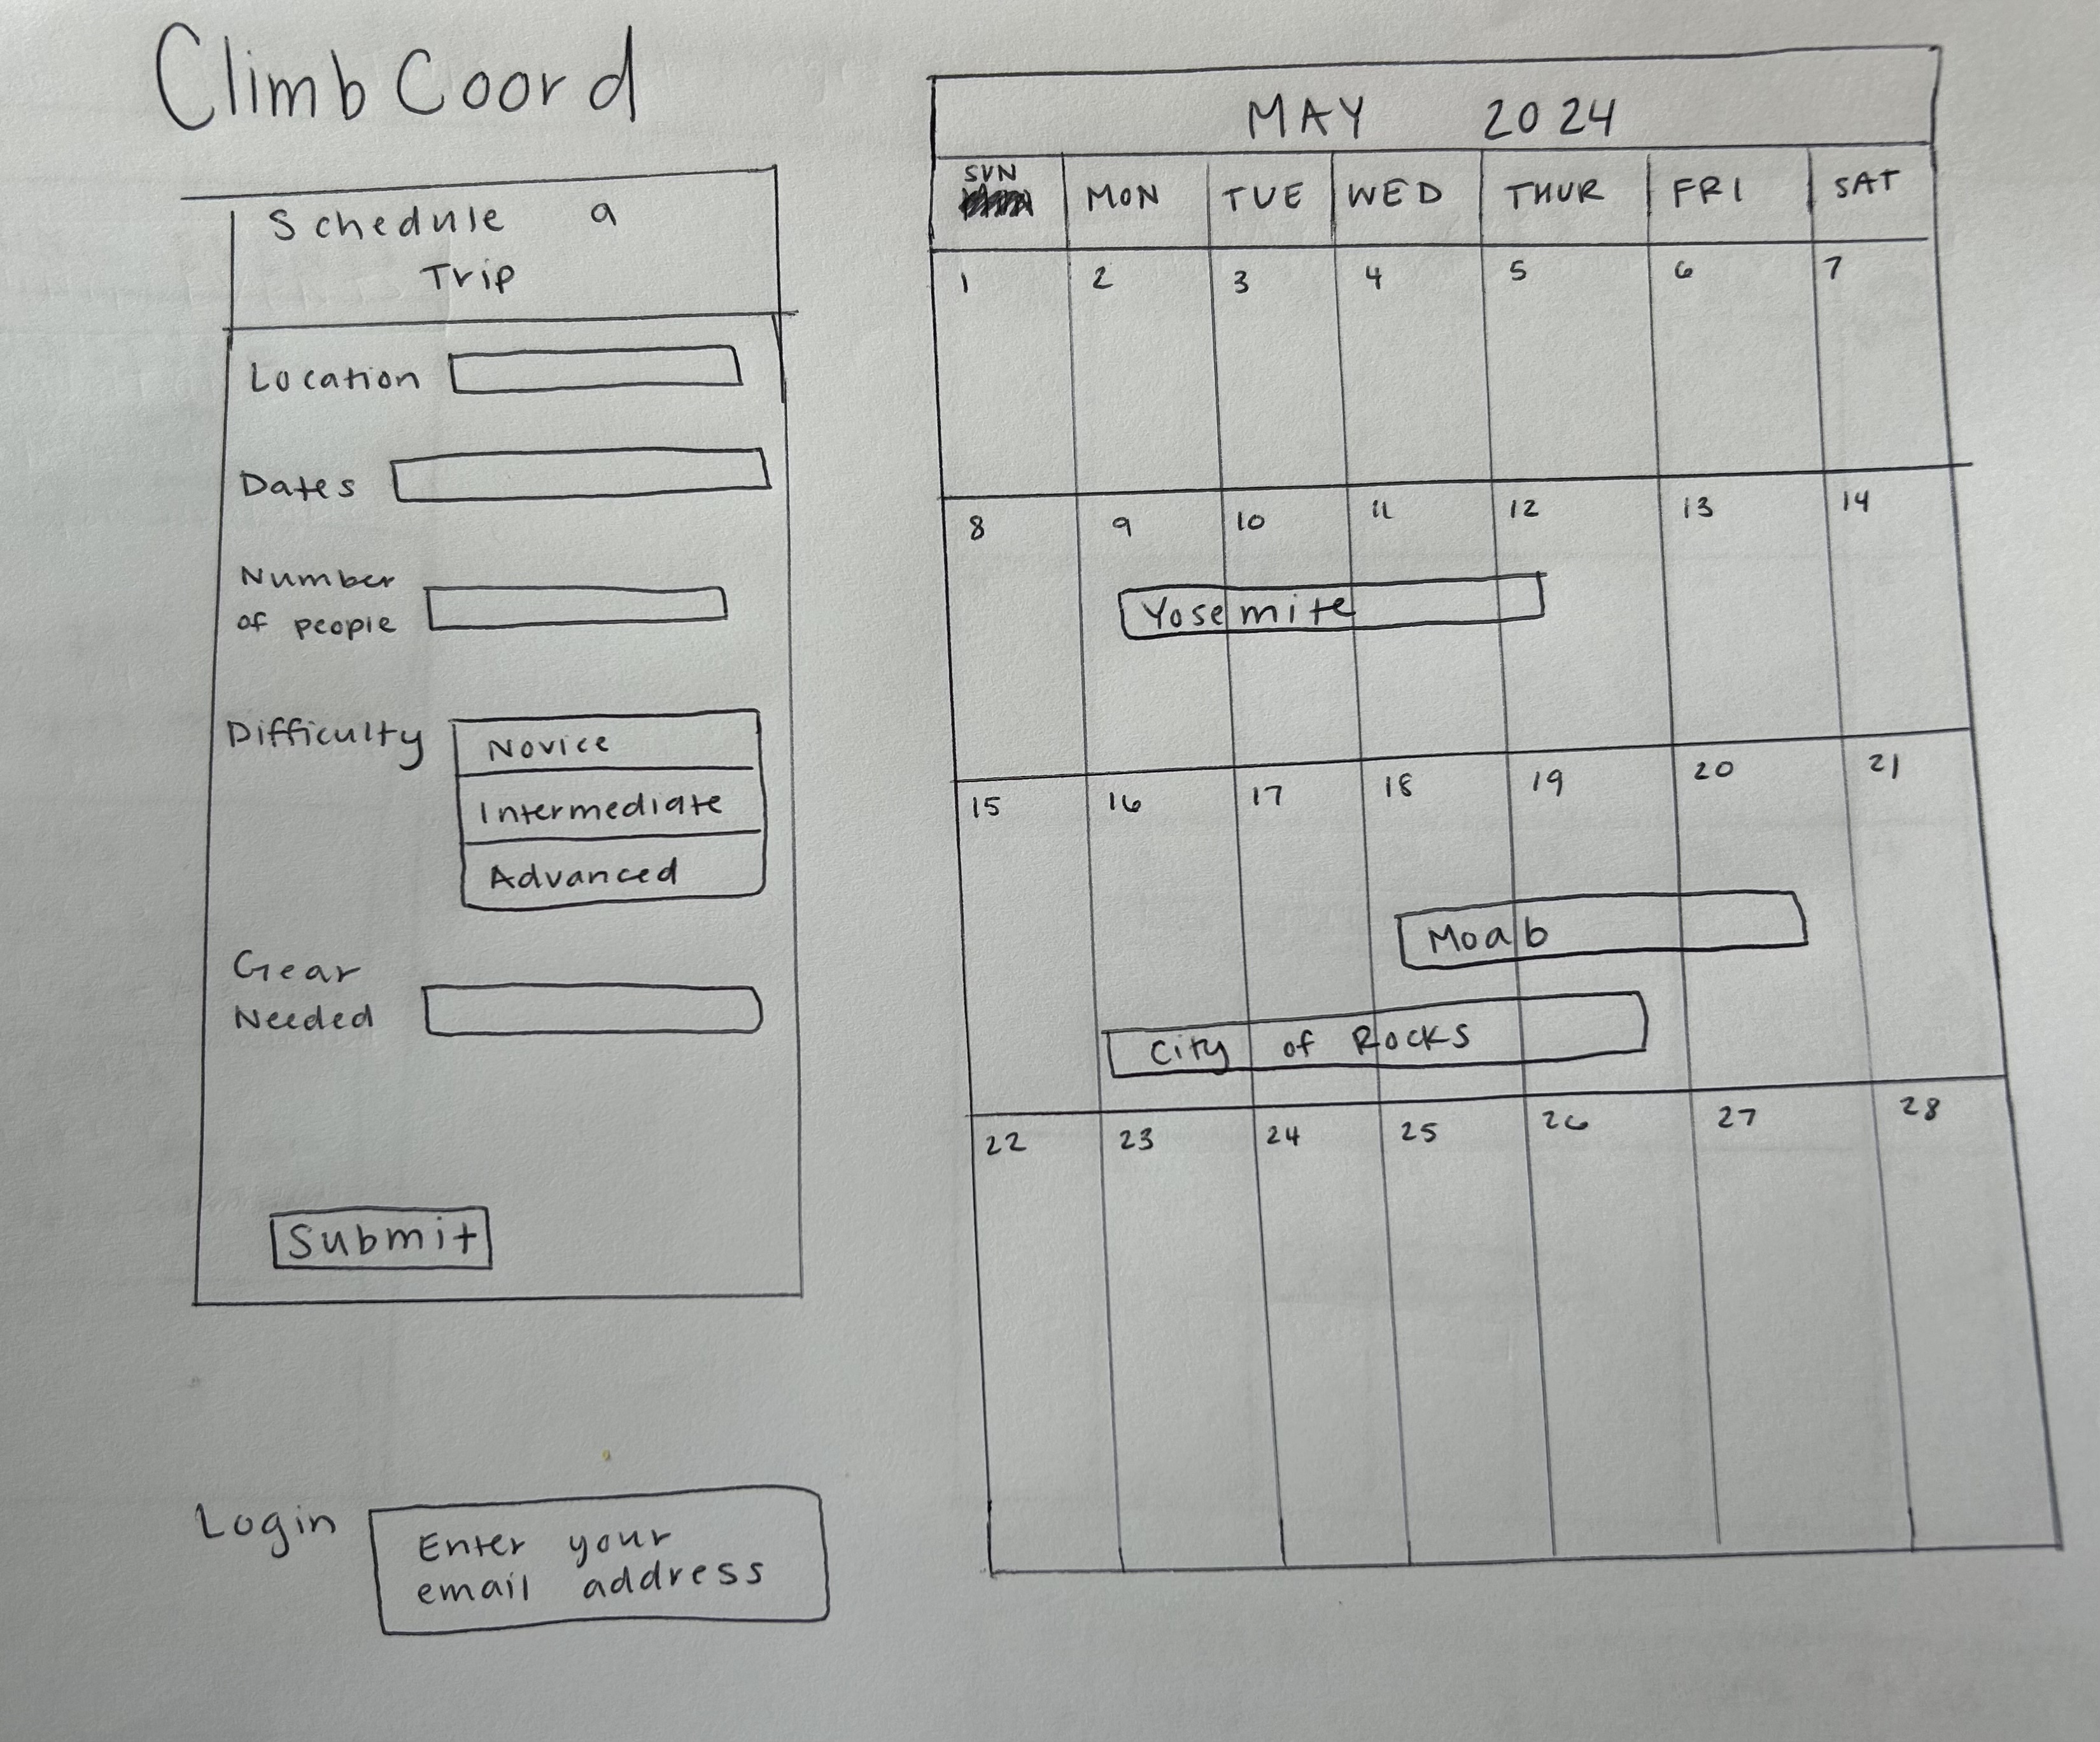 Climb Coord
Schedule a
Trip
Location
Dates
Number
of people
Difficulty
Novice
Intermediate
Advanced
Gear
Needed
Submit
Login
Enter your
email address
MAY 2024
SUN MON TUE WED THUR FRI SAT
1 2 3 4 5 6 7
8 9 10 11 12 13 14
Yosemite
15 16 17 18 19 20 21
Moab
City of Rocks
22 23 24 25 26 27 28